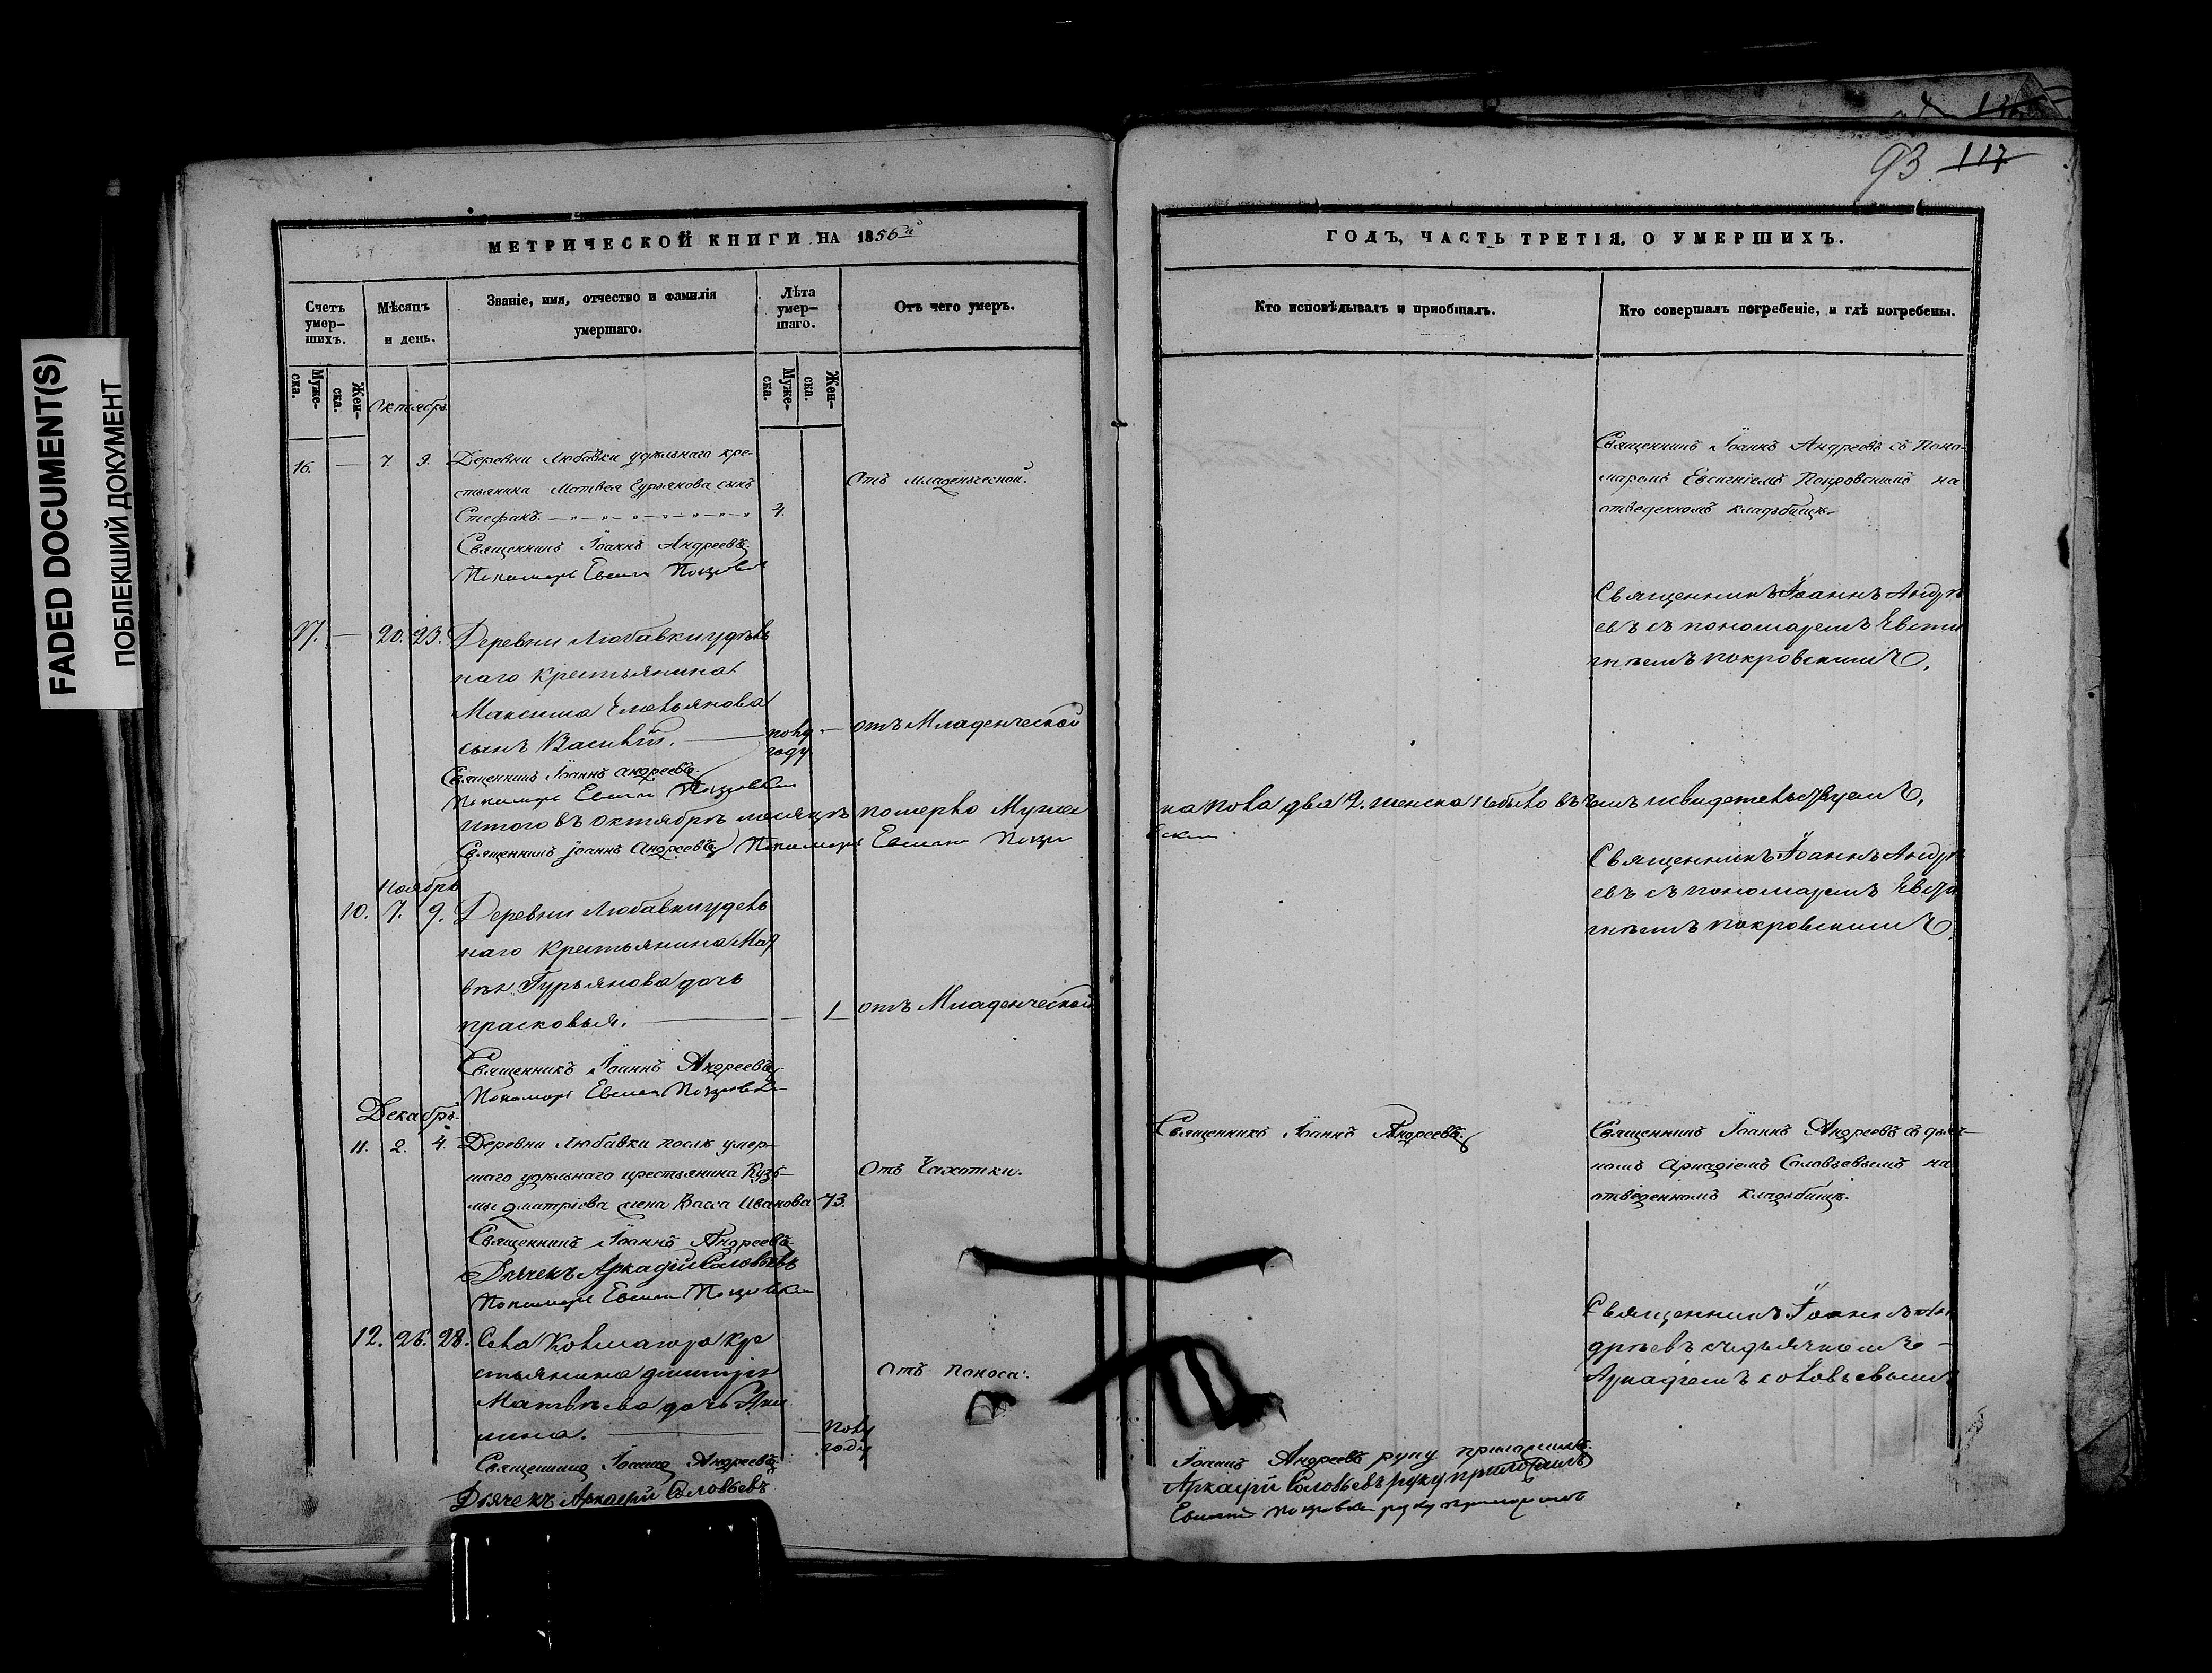 FADED DOCUMENT(S)
ПОБЛЕКШИЙ ДОКУМЕНТ
93 117
МЕТРИЧЕСКОЙ КНИГИ НА 1856й
Счетъ умер-шихъ.
Муже-ска.
Жен-ска.
Мѣсяцъ и день.
Званіе, имя, отчество и фамилія
умершаго.
Лѣта умер-шаго.
Муже-ска.
Жен-ска.
Отъ чего умеръ.
Октябрь
16. — 7. 9. Деревни Любавки удѣльнаго кре-
стьянина Матвея Гурьянова сынъ
Стефанъ. 4.
Отъ младенческой.
Священникъ Іоаннъ Андреевъ
Пономарь
17. — 20. 23. Деревни Любавки удѣль
наго крестьянина
Максима Емельянова
сынъ Василій. — полу году — отъ Младенческой
Священникъ Іоаннъ Андреевъ
Пономарь
Итого въ октябрѣ месяцѣ померло Мужес
Священникъ Іоаннъ Андреевъ Пономарь
Ноябрь
10. 7. 9. Деревни Любавки удель
наго Крестьянина Мат
вѣя Гурьянова дочь
прасковья. — 1 отъ Младенческой
Священникъ Іоаннъ Андреевъ
Пономарь
Декабрь.
11. 2. 4. Деревни Любавки послѣ умер-
шаго удѣльнаго крестьянина Кузь-
мы Дмитріева жена Васса Иванова 73.
Отъ Чахотки.
Священникъ Іоаннъ Андреевъ.
Дьячекъ Аркадій Соловьевъ
Пономарь
12. 26. 28. Села Колмагора кре
стьянина димитрія
Матвѣева дочь Аки
лина. — полу году
Отъ поноса.
Священникъ Іоаннъ Андреевъ
Дьячекъ Аркадій Соловьевъ
ГОДЪ, ЧАСТЬ ТРЕТІЯ, О УМЕРШИХЪ.
Кто исповѣдывалъ и пріобщалъ.
Кто совершалъ погребеніе, и гдѣ погребены.
Священникъ Іоаннъ Андреевъ съ Поно-
маремъ Евсигніемъ Покровскимъ на
отведенномъ кладбищѣ
Священникъ Іоаннъ Андре
евъ съ пономаремъ Евсти
гнѣемъ покровскимъ,
ка пола два 2. женска небыло въ чемъ исвидетельствуемъ,
Священникъ Іоаннъ Андре
евъ съ пономаремъ Евсти
гнѣемъ покровскимъ,
Священникъ Іоаннъ Андреевъ.
Священникъ Іоаннъ Андреевъ съ дьяч-
комъ Аркадіемъ Соловьевымъ на
отведенномъ кладбищѣ.
Священникъ Іоаннъ Ан
дреевъ съ дьячкомъ
Аркадіемъ соловьевымъ
Іоаннъ Андреевъ руку приложилъ.
Аркадій Соловьевъ руку приложилъ
руку приложилъ